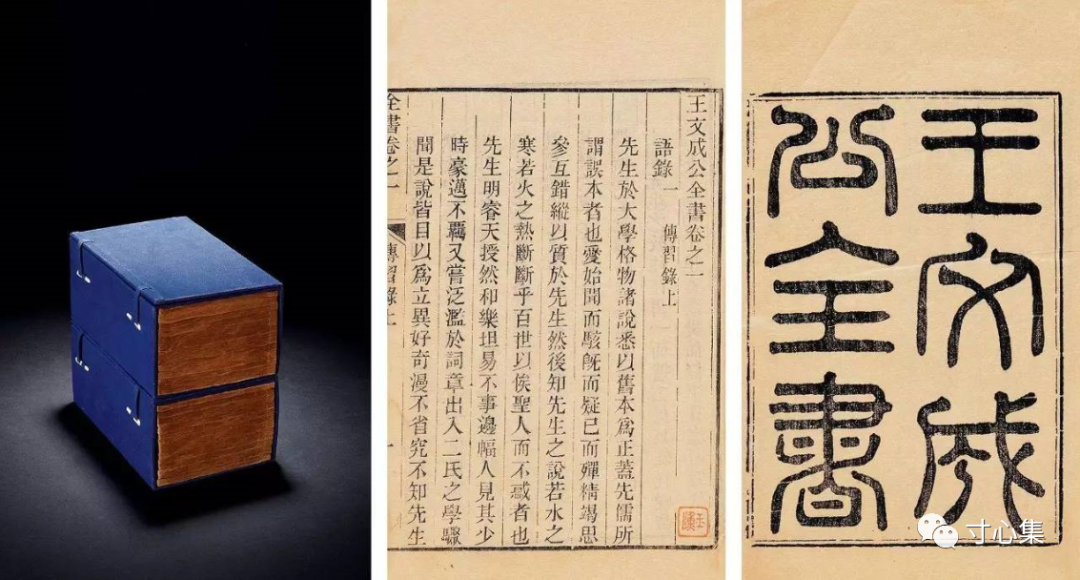 王文成
公全書
王文成公全書卷之一
語錄一　傳習錄上
先生於大學格物諸說悉以舊本爲正蓋先儒所
謂誤本者也愛始聞而駭旣而疑已而殫精竭思
參互錯縱以質於先生然後知先生之說若水之
寒若火之熱斷斷乎百世以俟聖人而不惑者也
先生明睿天授然和樂坦易不事邊幅人見其少
時豪邁不羈又嘗泛濫於詞章出入二氏之學驟
聞是說皆目以爲立異好奇漫不省究不知先生
全書卷之一　傳習錄上　一
寸心集